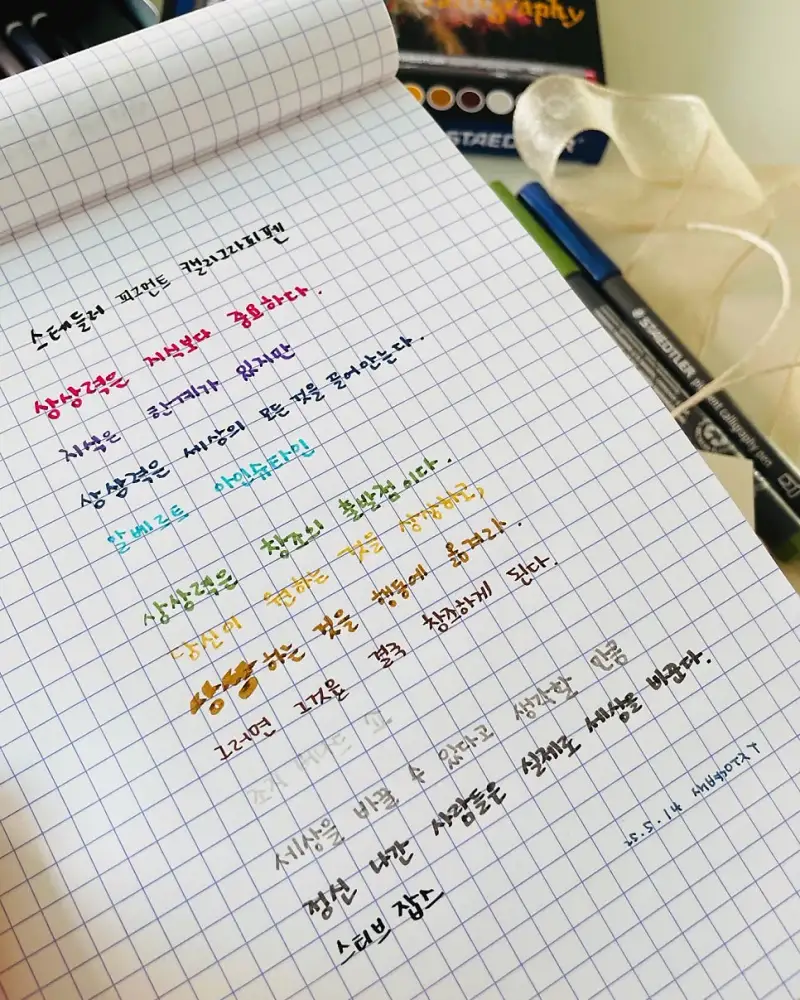 Calligraphy
STAEDTLER
STAEDTLER pigment calligraphy pen
스테들러 피그먼트 캘리그라피펜
상상력은 지식보다 중요하다.
지식은 한계가 있지만
상상력은 세상의 모든 것을 끌어안는다.
알베르트 아인슈타인
상상력은 창조의 출발점이다.
당신이 원하는 것을 상상하고,
상상하는 것을 행동에 옮겨라.
그러면 그것을 결국 창조하게 된다.
조지 버나드 쇼
세상을 바꿀 수 있다고 생각할 만큼
정신 나간 사람들은 실제로 세상을 바꾼다.
스티브 잡스